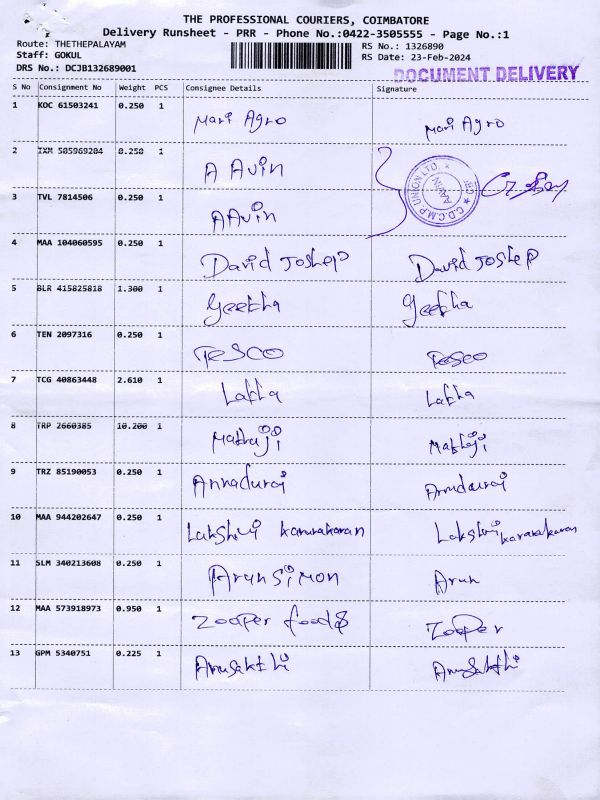 THE PROFESSIONAL COURIERS, COIMBATORE
Delivery Runsheet - PRR - Phone No.:0422-3505555 - Page No.:1
Route: THETHEPALAYAM RS No.: 1326890
Staff: GOKUL RS Date: 23-Feb-2024
DRS No.: DCJB132689001 DOCUMENT DELIVERY
S No Consignment No Weight PCS Consignee Details Signature
1 KOC 61503241 0.250 1 Mari Agro Mari Agro
2 IXM 505969204 0.250 1 A Avin
C.D.C.M.P. UNION LTD. AAVIN
3 TVL 7814506 0.250 1 AAvin
4 MAA 104060595 0.250 1 David Joshep David Joshep
5 BLR 415825818 1.300 1 Geetha Geetha
6 TEN 2097316 0.250 1 Tesco Tesco
7 TCG 40863448 2.610 1 Latha Latha
8 TRP 2660385 10.200 1
9 TRZ 85190053 0.250 1 Annadurai
10 MAA 944202647 0.250 1 Lakshmi Karunakaran Lakshmi
11 SLM 340213608 0.250 1 Arun Simon Arun
12 MAA 573918973 0.950 1 Zooper foods Zooper
13 GPM 5340751 0.225 1 Anusakthi Anusakthi